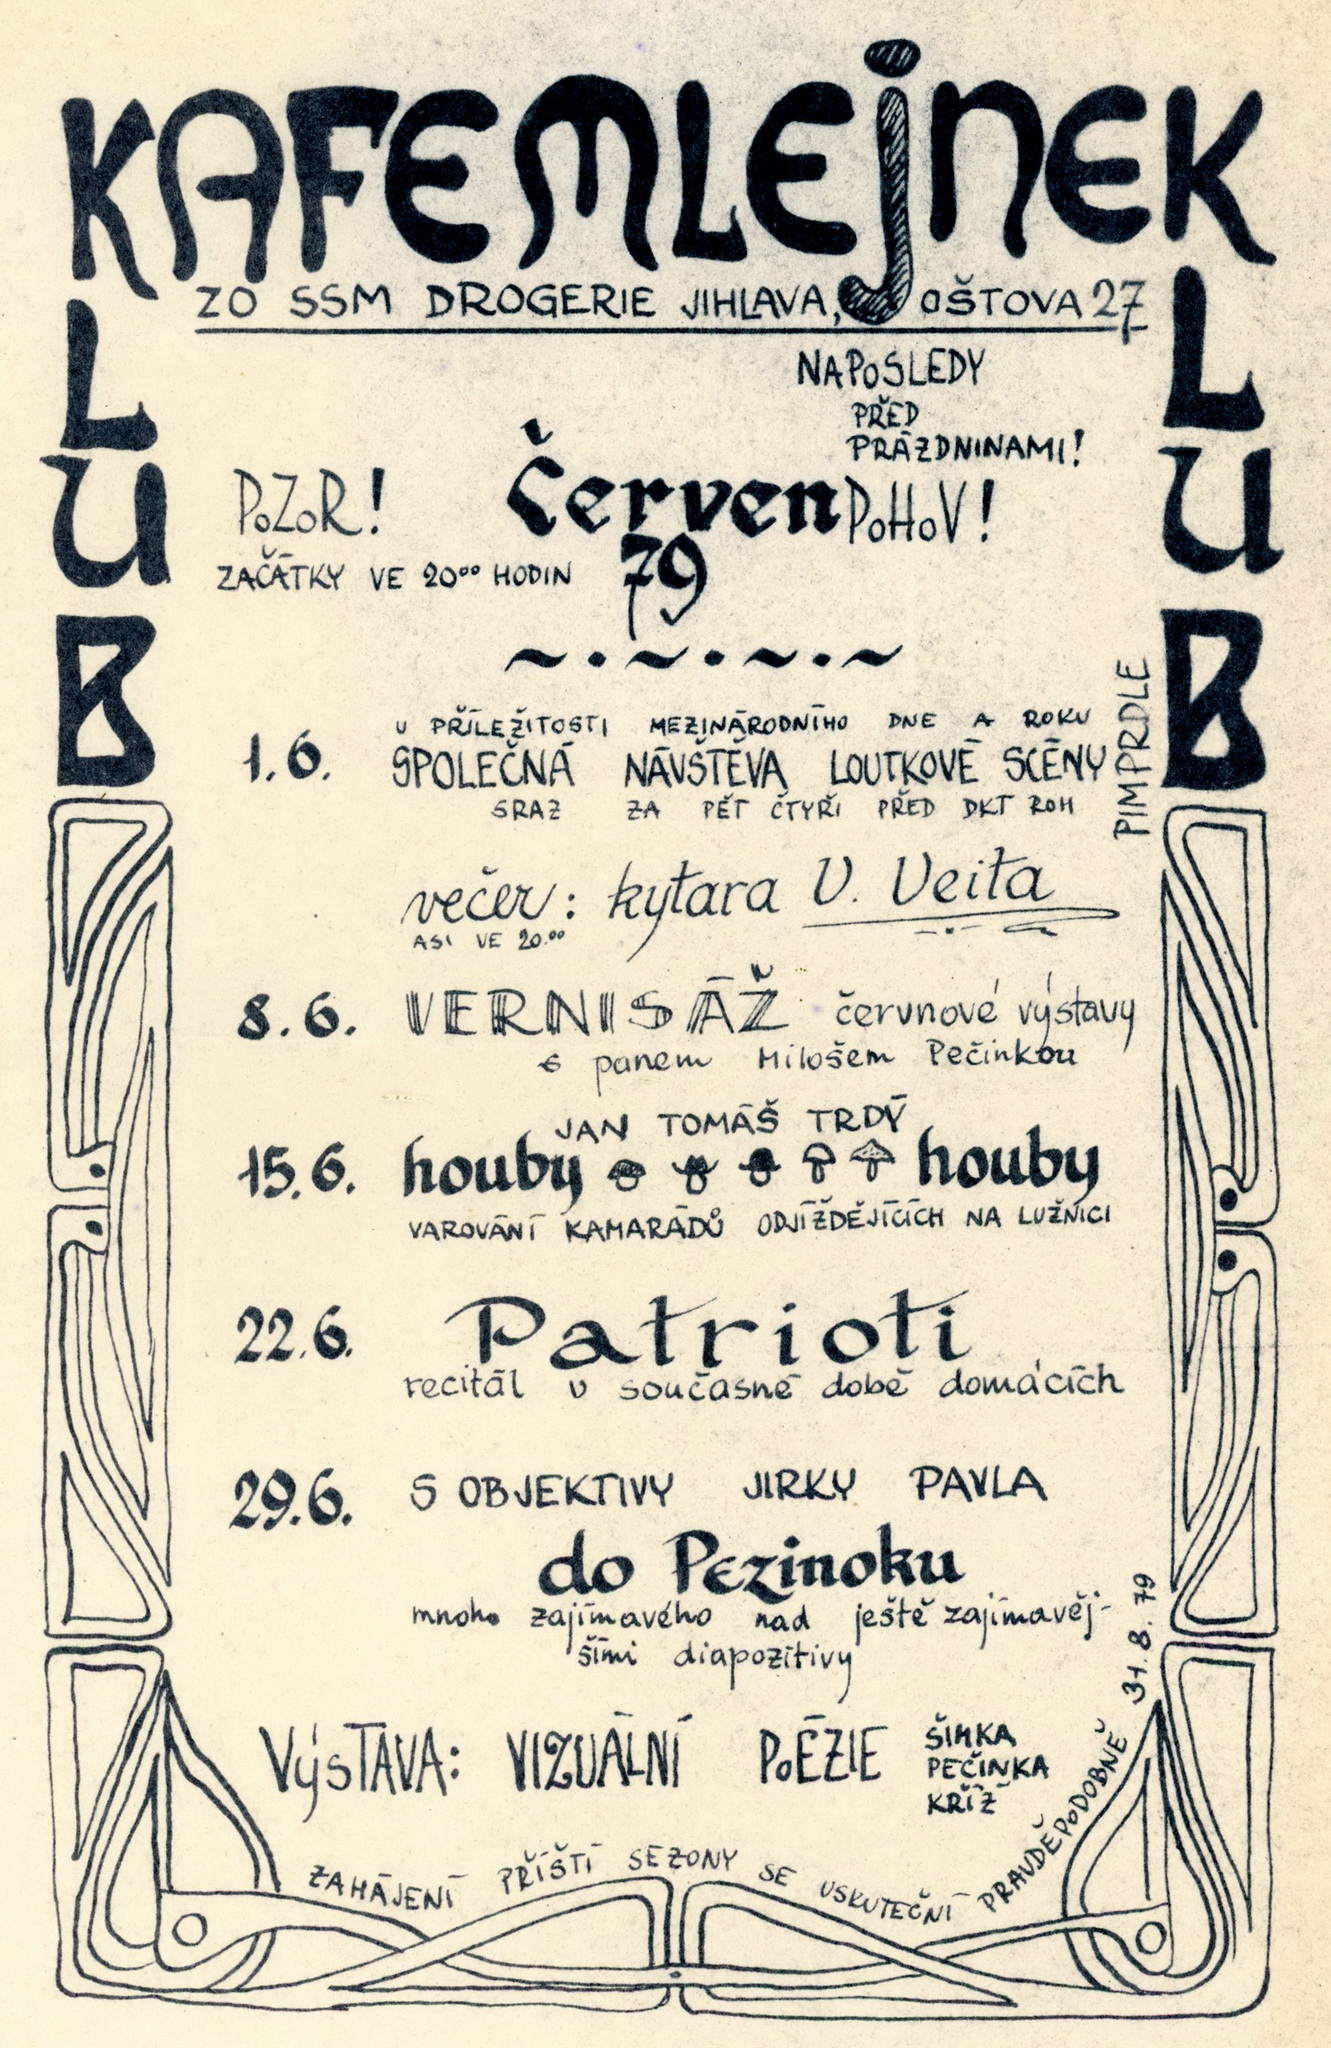 KAFEMLEjNEK
KLUB
KLUB
ZO SSM DROGERIE JIHLAVA, JOŠTOVA 27
NAPOSLEDY
PŘED
PRÁZDNINAMI!
POZOR!
Červen
POHOV!
ZAČÁTKY VE 20⁰⁰ HODIN
79
1.6.
U PŘÍLEŽITOSTI MEZINÁRODNÍHO DNE A ROKU
SPOLEČNÁ NÁVŠTĚVA LOUTKOVÉ SCÉNY
PIMPRDLE
SRAZ ZA PĚT ČTYŘI PŘED DKT ROH
večer: kytara V. Veita
ASI VE 20.⁰⁰
8.6. VERNISÁŽ červnové výstavy
s panem Milošem Pečinkou
JAN TOMÁŠ TRDÝ
15.6. houby houby
VAROVÁNÍ KAMARÁDŮ ODJÍŽDĚJÍCÍCH NA LUŽNICI
22.6. Patrioti
recitál v současné době domácích
29.6. S OBJEKTIVY JIRKY PAVLA
do Pezinoku
mnoho zajímavého nad ještě zajímavěj-
šími diapozitivy
VÝSTAVA: VIZUÁLNÍ POÉZIE
ŠIMKA
PEČINKA
KŘÍŽ
ZAHÁJENÍ PŘÍŠTÍ SEZONY SE USKUTEČNÍ PRAVDĚPODOBNĚ 31.8.79